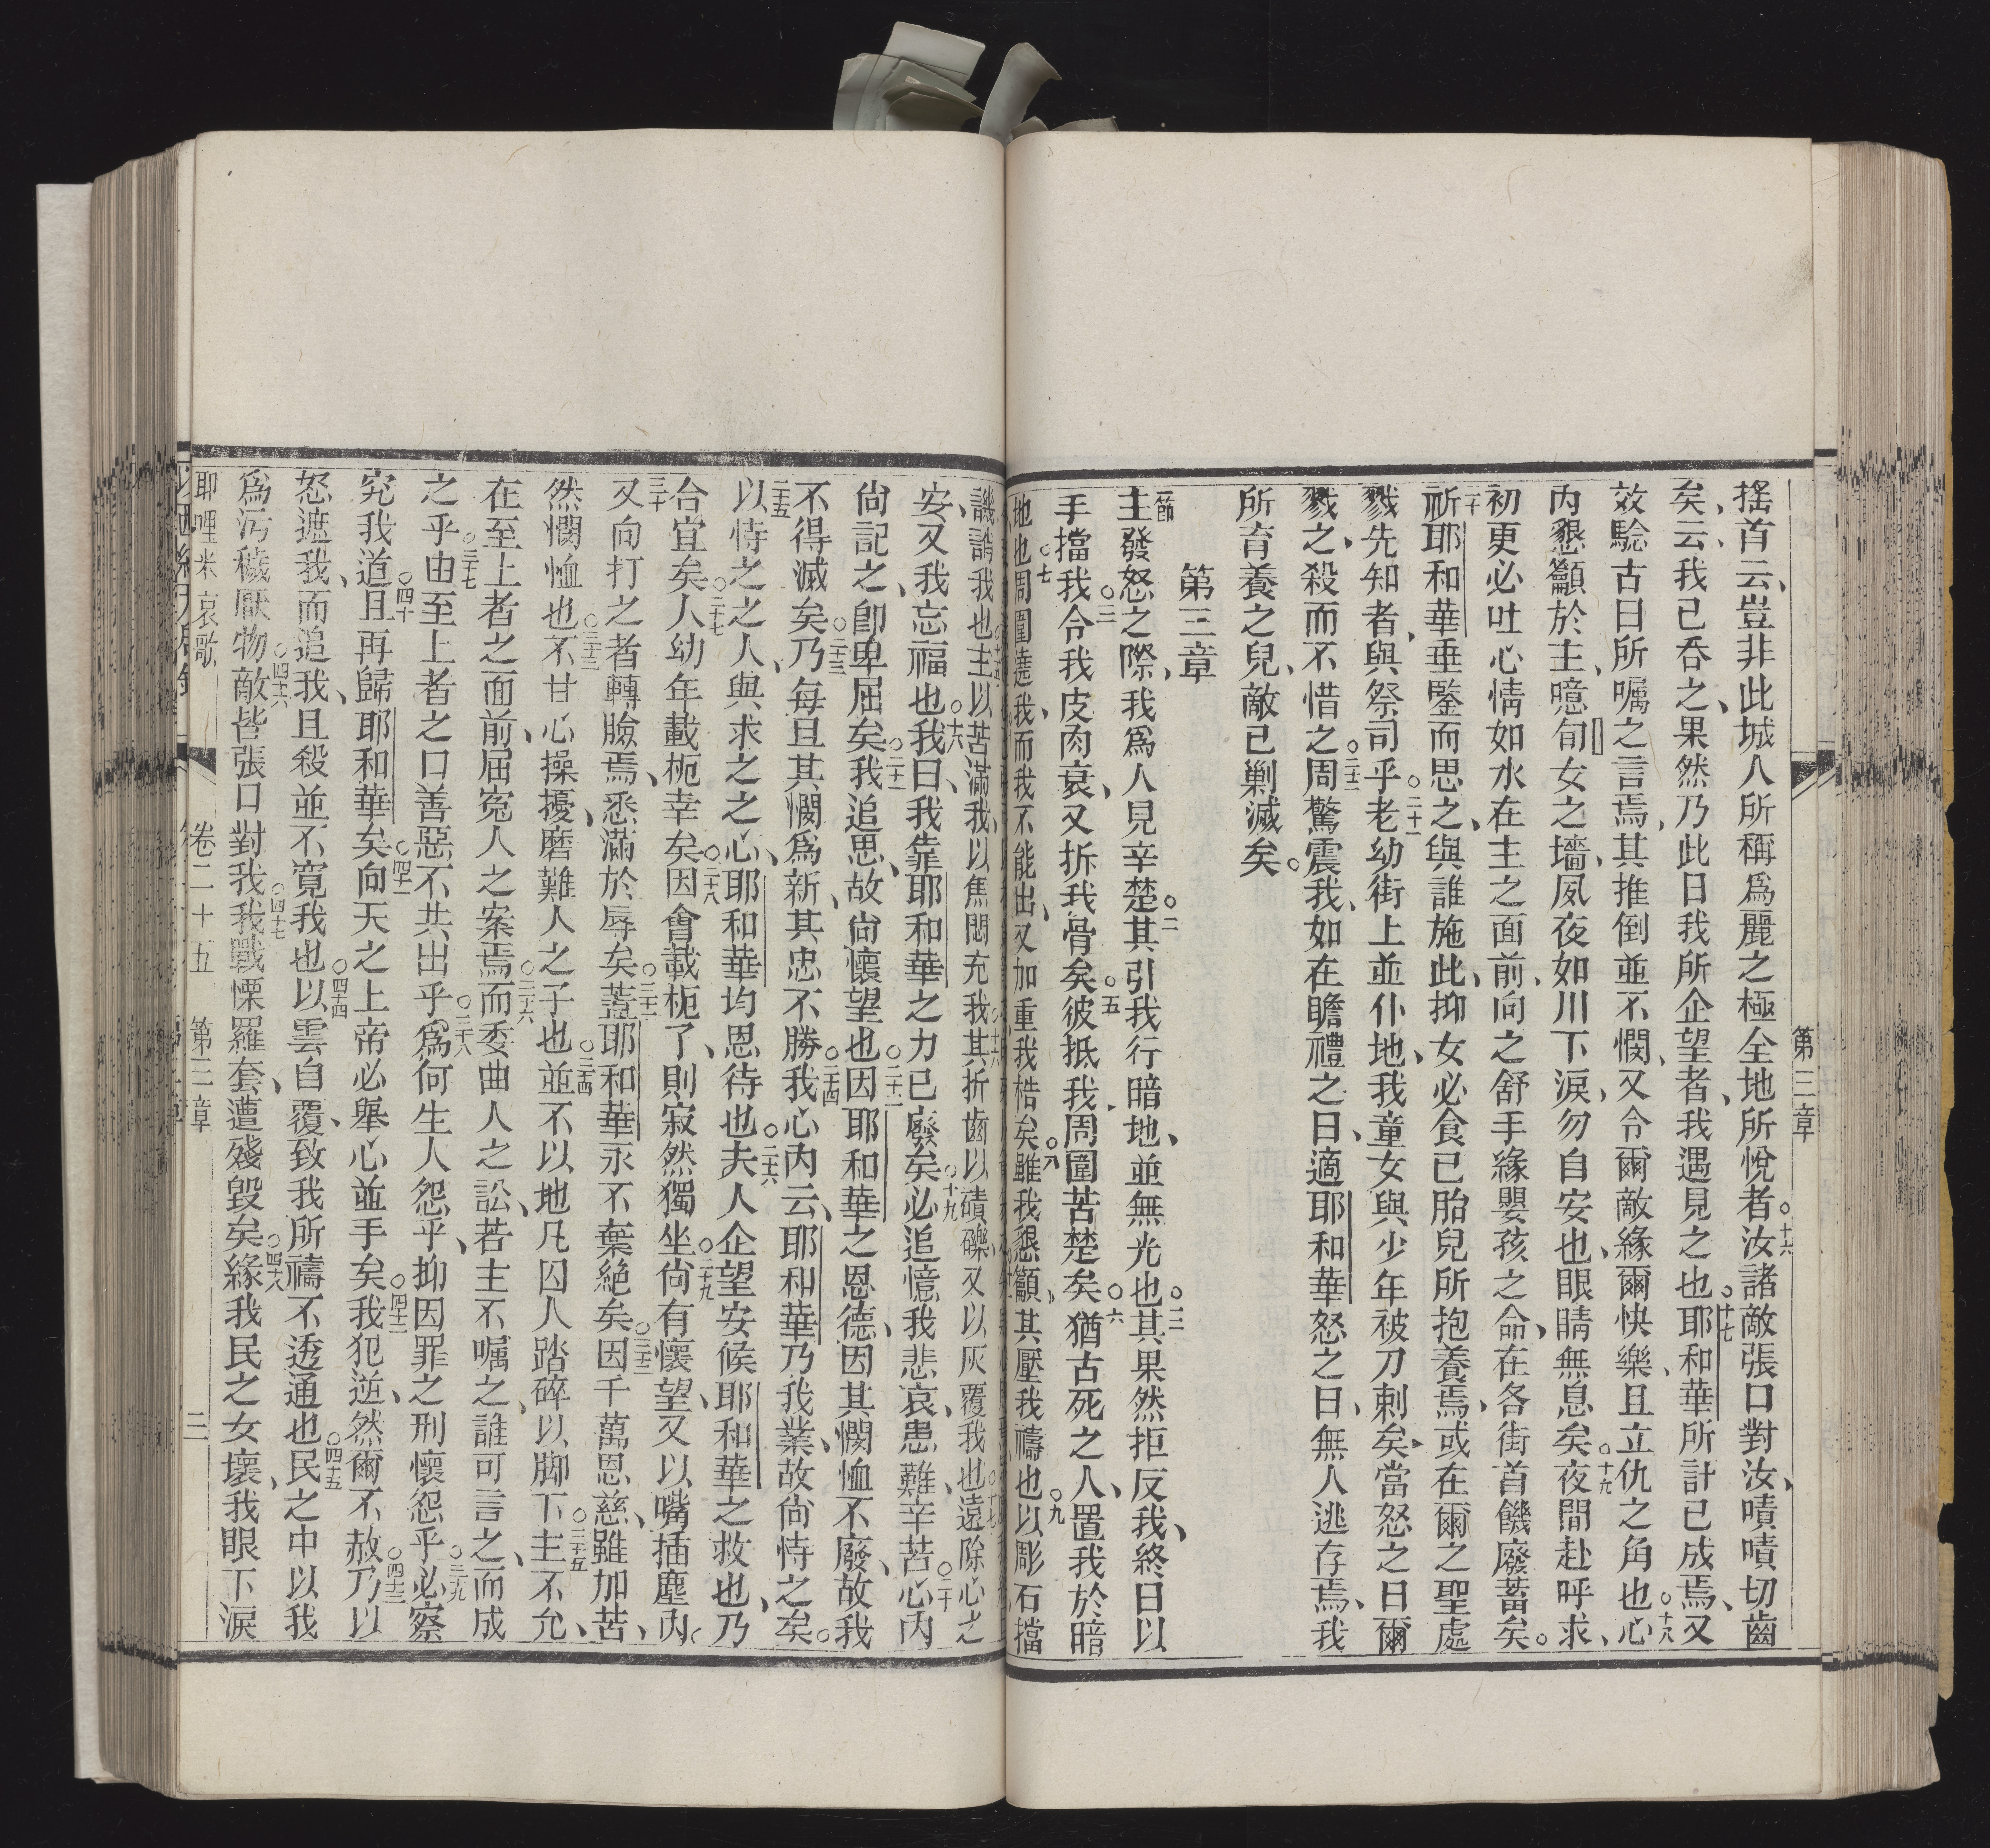 第三章
搖首云、豈非此城人所稱爲麗之極全地所悅者。十六汝諸敵張口對汝、嘖嘖切齒
矣、云、我已吞之、果然乃此日我所企望者、我遇見之也。十七耶和華所計已成焉、又
效騐古日所囑之言焉、其推倒並不憫、又令爾敵緣爾快樂、且立仇之角也。十八心
內懇籲於主、噫旬女之墻、夙夜如川下淚、勿自安也、眼睛無息矣。十九夜間赴呼求、
初更必吐心情如水在主之面前、向之舒手緣嬰孩之命、在各街首饑廢蓄矣。
二十祈耶和華垂鑒而思之、與誰施此、抑女必食已胎兒所抱養焉、或在爾之聖處
戮先知者、與祭司乎。二十一老幼街上並仆地、我童女與少年被刀刺矣、當怒之日爾
戮之、殺而不惜之。二十二周驚震我、如在瞻禮之日、適耶和華怒之日、無人逃存焉、我
所育養之兒、敵已剿滅矣。
第三章
一節主發怒之際、我爲人見辛楚。二其引我行暗地、並無光也。三其果然拒反我、終日以
手擋我。四令我皮肉衰、又折我骨矣。五彼抵我、周圍苦楚矣。六猶古死之人、置我於暗
地也。七周圍遶我、而我不能出、又加重我梏矣。八雖我懇籲、其壓我禱也。九以彫石擋
譏誚我也。主以苦滿我、以焦悶充我。十六其折齒以磧礫、又以灰覆我也。十七遠除心之
安、又我忘福也。十八我曰、我靠耶和華之力已廢矣。十九必追憶我悲哀、患難、辛苦。二十心內
尙記之、卽卑屈矣。二十一我追思、故尙懷望也。二十二因耶和華之恩德、因其憫恤不廢、故我
不得滅矣。二十三乃每旦其憫爲新、其忠不勝。二十四我心內云、耶和華乃我業、故尙恃之矣。
二十五以恃之之人、與求之之心、耶和華均恩待也。二十六夫人企望安候耶和華之救也、乃
合宜矣。二十七人幼年載枙幸矣。二十八因會載枙了、則寂然獨坐。二十九尙有懷望、又以嘴插塵內。
三十又向打之者轉臉焉、悉滿於辱矣。三十一蓋耶和華永不棄絕矣。三十二因千萬恩慈、雖加苦、
然憫恤也。三十三不甘心操擾、磨難人之子也。三十四並不以地凡囚人踏碎以脚下。三十五主不允、
在至上者之面前、屈寃人之案焉。三十六而委曲人之訟、若主不囑之、誰可言之、而成
之乎。三十七由至上者之口善惡不共出乎。三十八爲何生人怨乎、抑因罪之刑懷怨乎。三十九必察
究我道、且再歸耶和華矣。四十一向天之上帝必舉心並手矣。四十二我犯逆、然爾不赦。四十三乃以
怒遮我、而追我、且殺並不寬我也。四十四以雲自覆、致我所禱不透通也。四十五民之中以我
爲污穢厭物。四十六敵皆張口對我。四十七我戰慄羅套、遭殘毀矣。四十八緣我民之女壞、我眼下淚
耶哩米哀歌 卷二十五 第三章 二